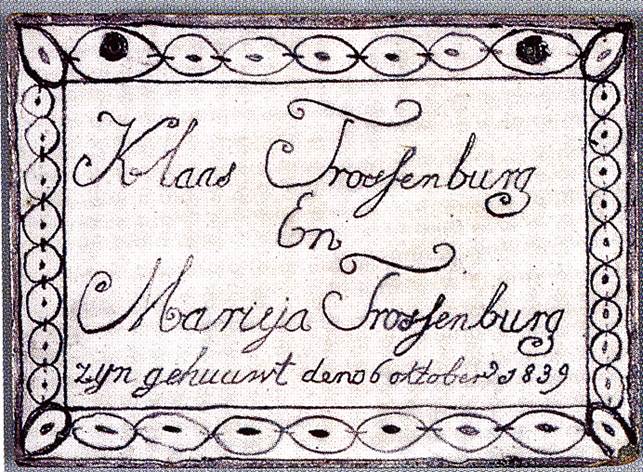 Klaas Trossenburg
En
Marieja Trossenburg
zijn gehuuwt den 6 oktober 1839